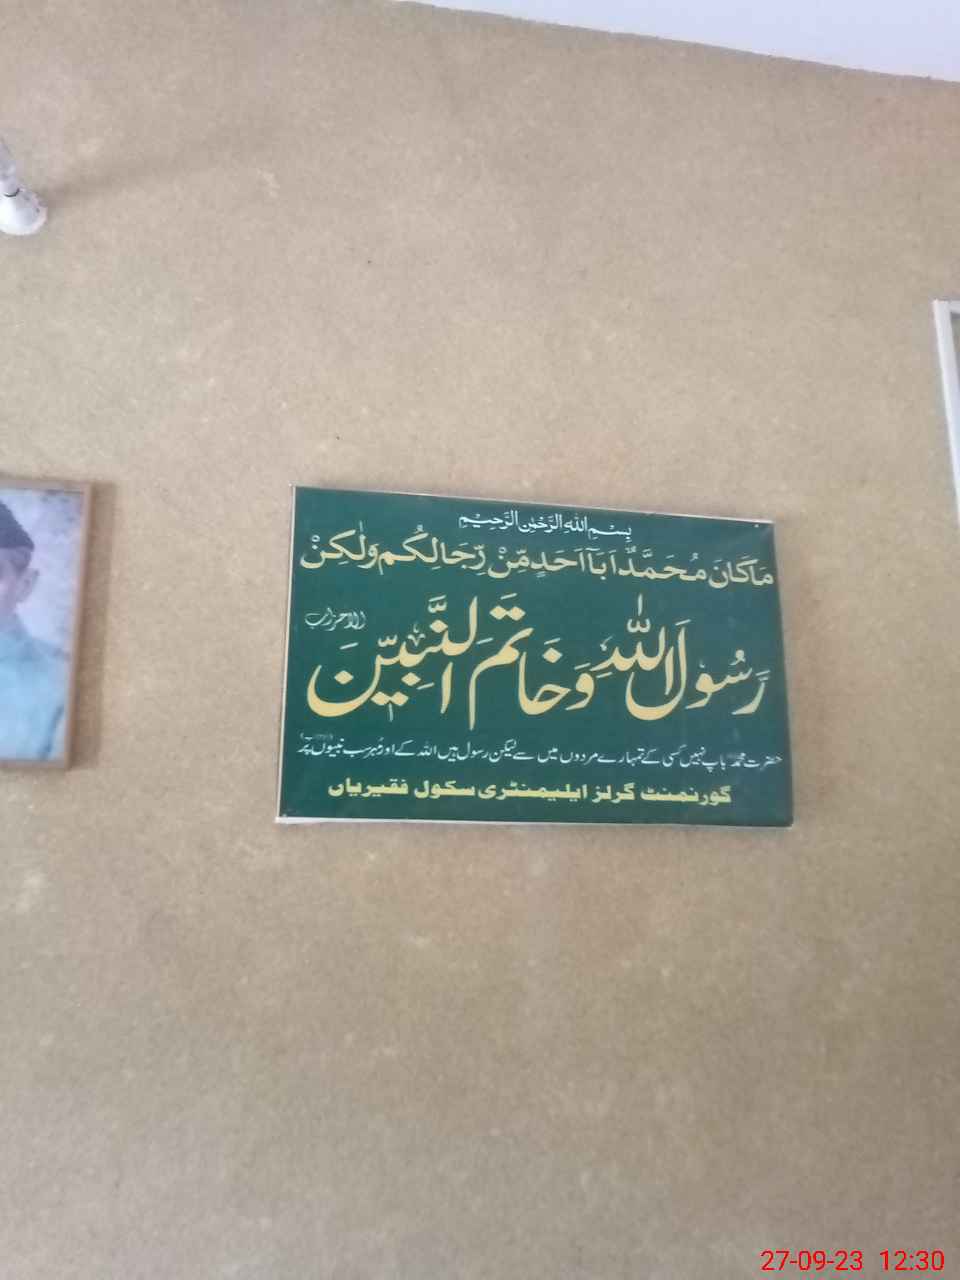 بِسْمِ اللهِ الرَّحْمٰنِ الرَّحِيْمِ
مَا كَانَ مُحَمَّدٌ اَبَآ اَحَدٍ مِّنْ رِّجَالِكُمْ وَلٰكِنْ
رَّسُوْلَ اللّٰهِ وَخَاتَمَ النَّبِيّٖنَ
الاحزاب
حضرت محمدؐ باپ نہیں کسی کے تمہارے مردوں میں سے لیکن رسول ہیں اللہ کے اور مُہر سب نبیوں پر
گورنمنٹ گرلز ایلیمنٹری سکول فقیریاں
27-09-23 12:30